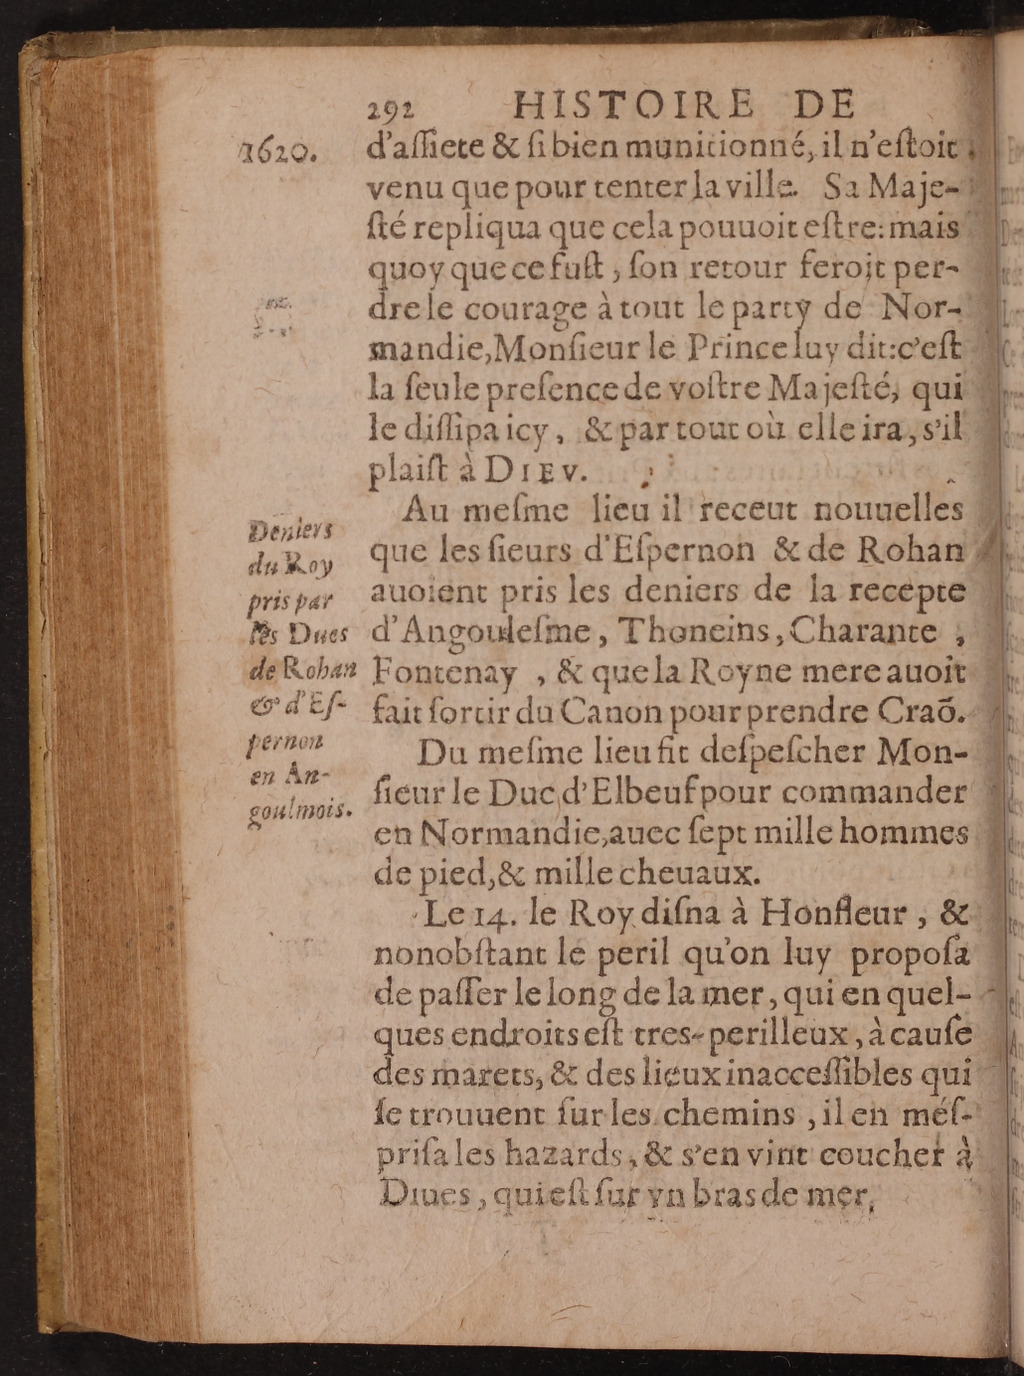 292 HISTOIRE DE
1620.
d'aſſiete & ſi bien munitionné, il n'eſtoit
venu que pour tenter la ville. Sa Maje-
ſté repliqua que cela pouuoit eſtre: mais
quoy que ce fuſt, ſon retour feroit per-
dre le courage à tout le party de Nor-
mandie, Monſieur le Prince luy dit: c'eſt
la ſeule preſence de voſtre Majeſté, qui
le diſſipa icy, & par tout où elle ira, s'il
plaiſt à DIEV.
Au meſme lieu il receut nouuelles
que les ſieurs d'Eſpernon & de Rohan
auoient pris les deniers de la recepte
d'Angouleſme, Thoneins, Charante,
Fontenay, & que la Royne mere auoit
fait ſortir du Canon pour prendre Craõ.
Du meſme lieu fit deſpeſcher Mon-
ſieur le Duc d'Elbeuf pour commander
en Normandie, auec ſept mille hommes
de pied, & mille cheuaux.
Le 14. le Roy diſna à Honfleur, &
nonobſtant le peril qu'on luy propoſa
de paſſer le long de la mer, qui en quel-
ques endroits eſt tres-perilleux, à cauſe
des marets, & des lieux inacceſſibles qui
ſe trouuent ſur les chemins, il en méſ-
priſa les hazards, & s'en vint coucher à
Diues, qui eſt ſur vn bras de mer,
Deniers
du Roy
pris par
les Ducs
de Rohan
& d'Eſ-
pernon
en An-
goulmois.